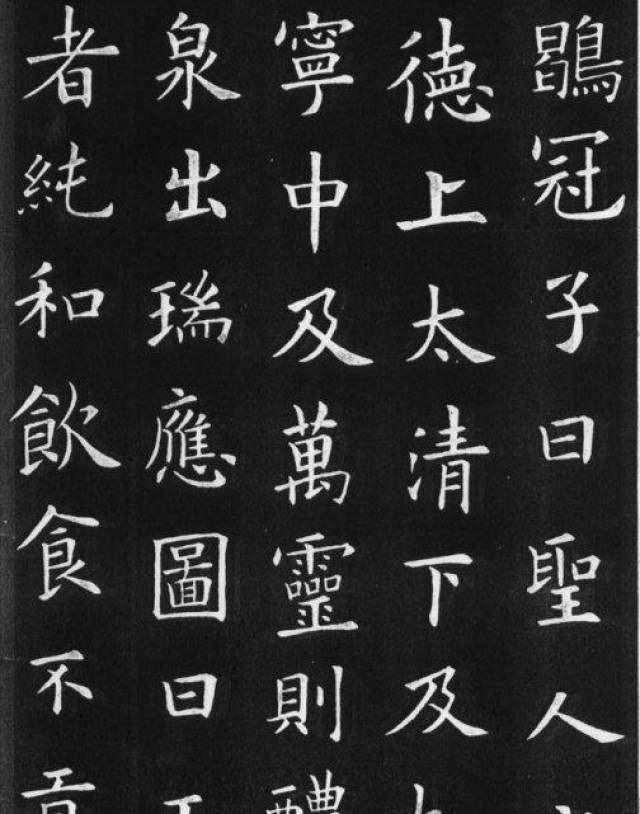 鶡冠子曰聖人
徳上太清下及
寧中及萬靈則醴
泉出瑞應圖曰王
者純和飲食不貢